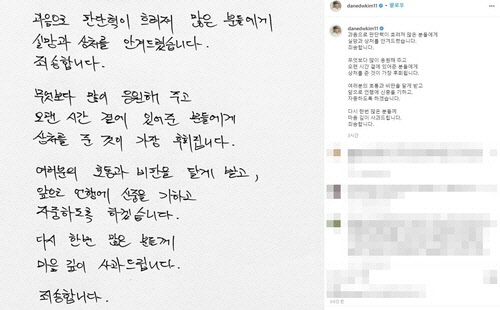 과음으로 판단력이 흐려져 많은 분들에게
실망과 상처를 안겨드렸습니다.
죄송합니다.
무엇보다 많이 응원해 주고
오랜 시간 곁에 있어준 분들에게
상처를 준 것이 가장 후회됩니다.
여러분의 호통과 비판을 달게 받고,
앞으로 언행에 신중을 기하고
자중하도록 하겠습니다.
다시 한번 많은 분들께
마음 깊이 사과드립니다.
죄송합니다.
danedwkim11 • 팔로우
danedwkim11
과음으로 판단력이 흐려져 많은 분들에게
실망과 상처를 안겨드렸습니다.
죄송합니다.
무엇보다 많이 응원해 주고
오랜 시간 곁에 있어준 분들에게
상처를 준 것이 가장 후회됩니다.
여러분의 호통과 비판을 달게 받고
앞으로 언행에 신중을 기하고,
자중하도록 하겠습니다.
다시 한번 많은 분들께
마음 깊이 사과드립니다.
죄송합니다.